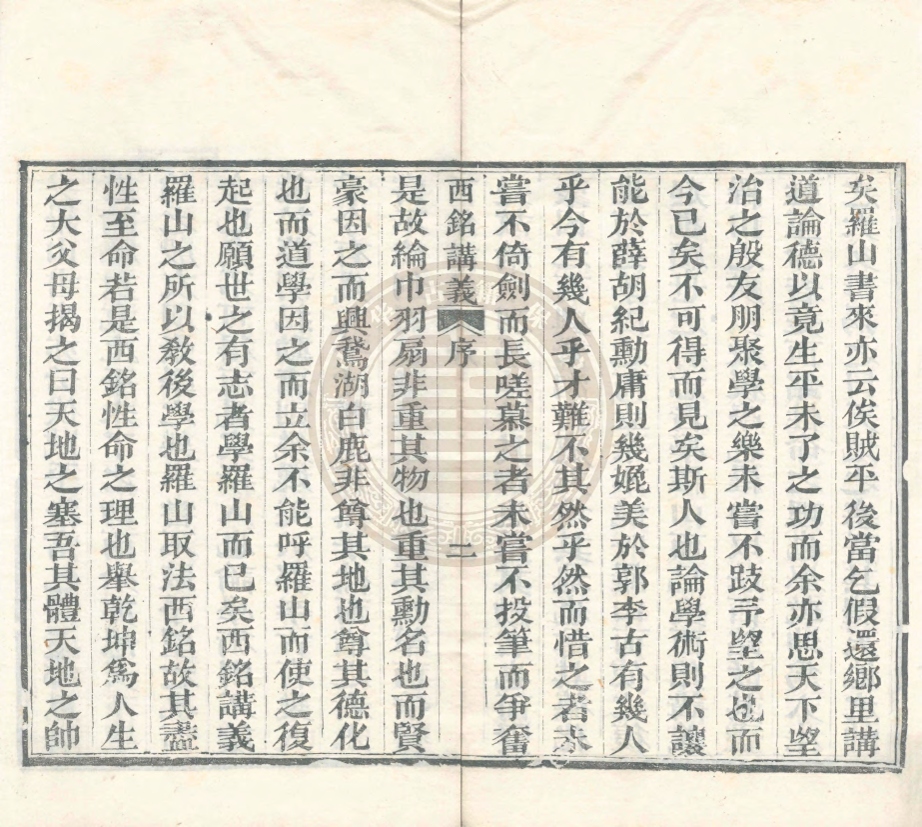 矣羅山書來亦云俟賊平後當乞假還鄉里講
道論德以竟生平未了之功而余亦思天下望
治之殷友朋聚學之樂未嘗不跂予望之也而
今已矣不可得而見矣斯人也論學術則不讓
能於薛胡紀勳庸則幾媲美於郭李古有幾人
乎今有幾人乎才難不其然乎然而惜之者未
嘗不倚劍而長嗟慕之者未嘗不投筆而爭奮
西銘講義 序 二
是故綸巾羽扇非重其物也重其勳名也而賢
豪因之而興鵞湖白鹿非尊其地也尊其德化
也而道學因之而立余不能呼羅山而使之復
起也願世之有志者學羅山而已矣西銘講義
羅山之所以敎後學也羅山取法西銘故其盡
性至命若是西銘性命之理也舉乾坤爲人生
之大父母揭之曰天地之塞吾其體天地之帥